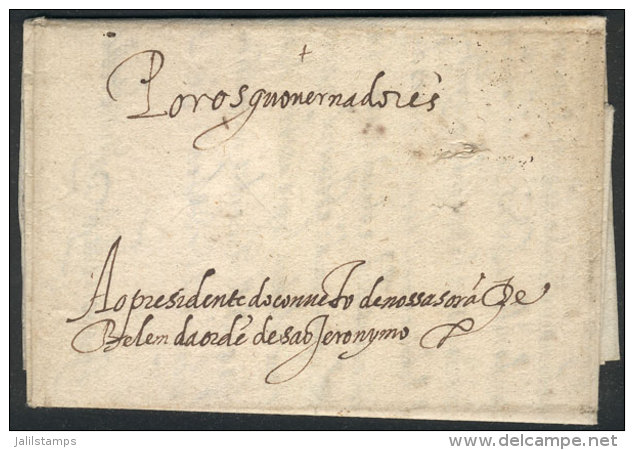 +
Poros guovernadorēs
Ao presidente do conuēto de nossa sorã de
Belem da ordē de sao Jeronymo
jalilstamps
delcampe.net